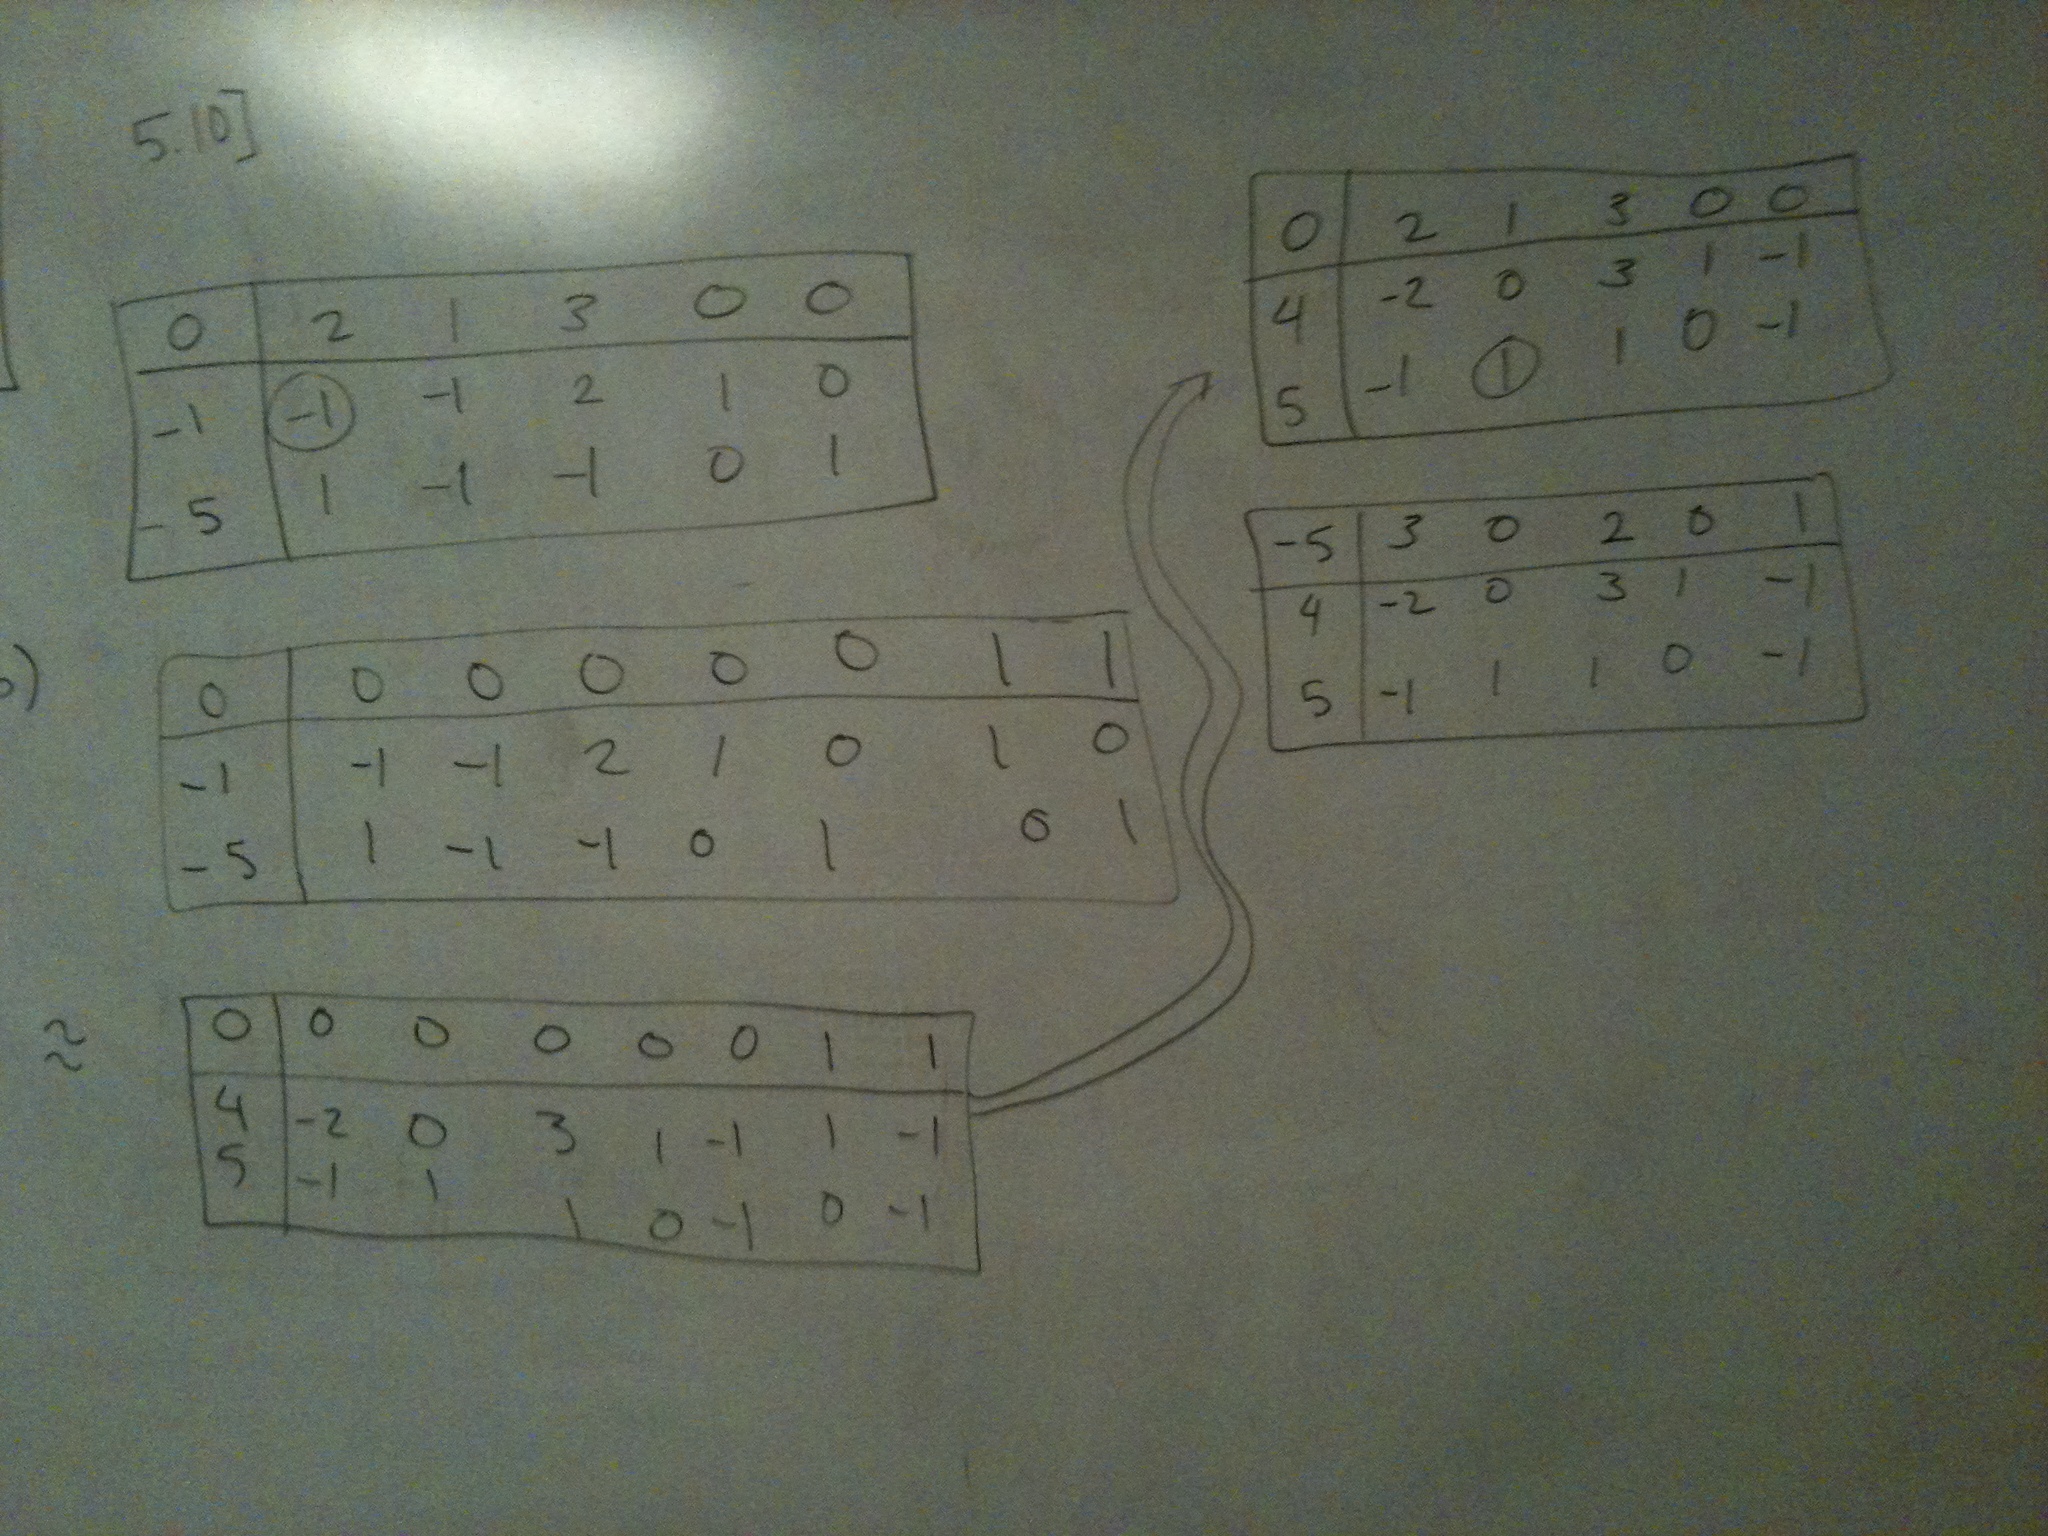 5.10]
0 2 1 3 0 0
-1 -1 -1 2 1 0
-5 1 -1 -1 0 1
b)
0 0 0 0 0 0 1 1
-1 -1 -1 2 1 0 1 0
-5 1 -1 -1 0 1 0 1
0 0 0 0 0 0 1 1
4 -2 0 3 1 -1 1 -1
5 -1 1 1 0 -1 0 -1
0 2 1 3 0 0
4 -2 0 3 1 -1
5 -1 1 1 0 -1
-5 3 0 2 0 1
4 -2 0 3 1 -1
5 -1 1 1 0 -1